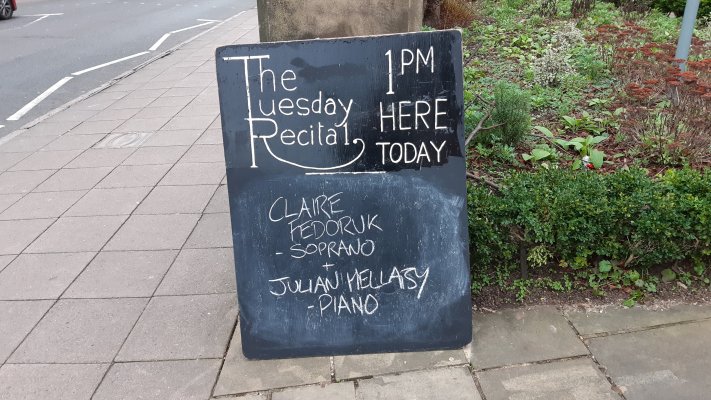 The
Tuesday
Recital
1PM
HERE
TODAY
CLAIRE
FEDORUK
- SOPRANO
+
JULIAN HELLABY
- PIANO